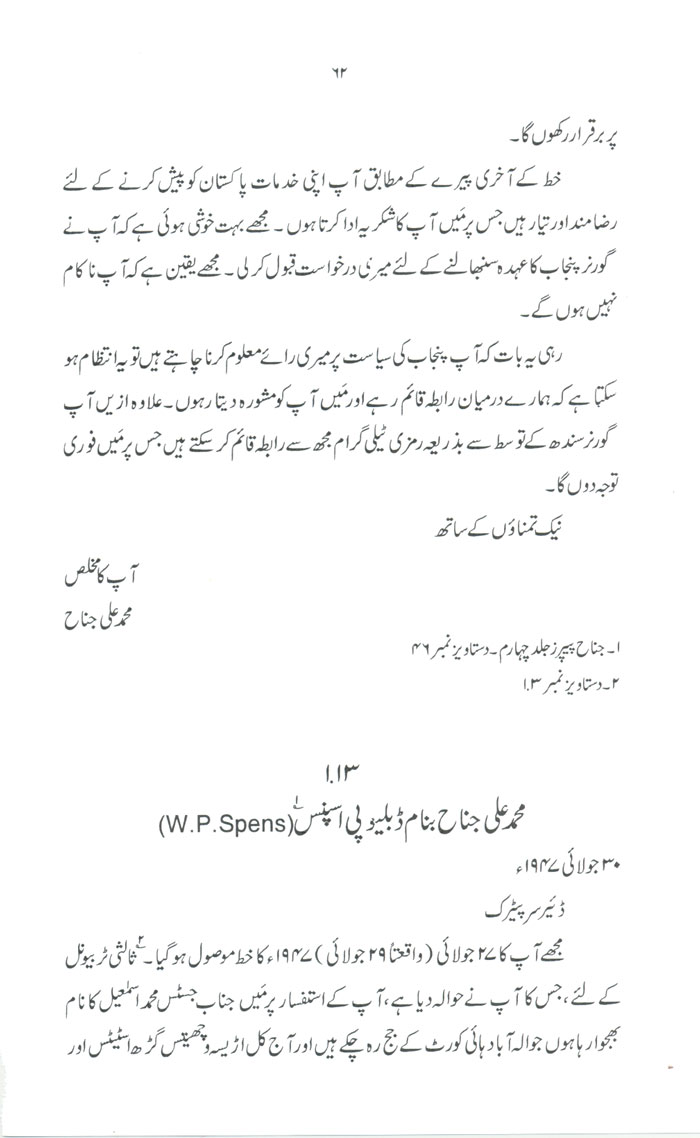 ۶۲
پر برقرار رکھوں گا۔
خط کے آخری پیرے کے مطابق آپ اپنی خدمات پاکستان کو پیش کرنے کے لئے
رضامند اور تیار ہیں جس پر مَیں آپ کا شکریہ ادا کرتا ہوں۔ مجھے بہت خوشی ہوئی ہے کہ آپ نے
گورنر پنجاب کا عہدہ سنبھالنے کے لئے میری درخواست قبول کر لی۔ مجھے یقین ہے کہ آپ ناکام
نہیں ہوں گے۔
رہی یہ بات کہ آپ پنجاب کی سیاست پر میری رائے معلوم کرنا چاہتے ہیں تو یہ انتظام ہو
سکتا ہے کہ ہمارے درمیان رابطہ قائم رہے اور مَیں آپ کو مشورہ دیتا رہوں۔ علاوہ ازیں آپ
گورنر سندھ کے توسط سے بذریعہ رمزی ٹیلی گرام مجھ سے رابطہ قائم کر سکتے ہیں جس پر مَیں فوری
توجہ دوں گا۔
نیک تمناؤں کے ساتھ
آپ کا مخلص
محمد علی جناح
۱۔ جناح پیپرز جلد چہارم۔ دستاویز نمبر ۴۶
۲۔ دستاویز نمبر ۱.۳
۱.۱۳
محمد علی جناح بنام ڈبلیو پی اسپنس۱ (W.P.Spens)
۳۰ جولائی ۱۹۴۷ء
ڈئیر سر پیٹرک
مجھے آپ کا ۲۷ جولائی (واقعتاً ۲۹ جولائی) ۱۹۴۷ء کا خط موصول ہو گیا۔۲ ثالثی ٹریبونل
کے لئے، جس کا آپ نے حوالہ دیا ہے، آپ کے استفسار پر مَیں جناب جسٹس محمد اسمٰعیل کا نام
بھجوا رہا ہوں جو الہ آباد ہائی کورٹ کے جج رہ چکے ہیں اور آج کل اڑیسہ و چھتیس گڑھ اسٹیٹس اور